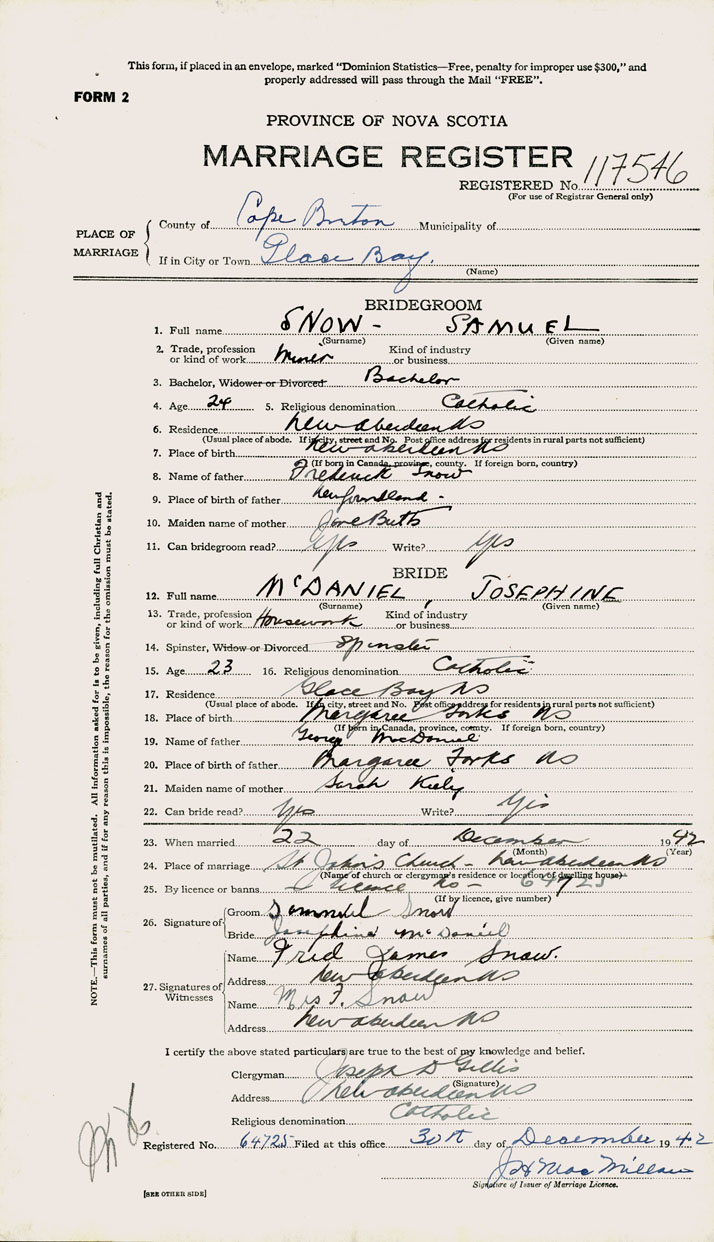 This form, if placed in an envelope, marked “Dominion Statistics—Free, penalty for improper use $300,” and
properly addressed will pass through the Mail “FREE”.
FORM 2
PROVINCE OF NOVA SCOTIA
MARRIAGE REGISTER
REGISTERED No. 117546
(For use of Registrar General only)
PLACE OF MARRIAGE
County of Cape Breton Municipality of
If in City or Town Glace Bay.
(Name)
BRIDEGROOM
1. Full name SNOW - SAMUEL
(Surname) (Given name)
2. Trade, profession or kind of work Miner Kind of industry or business
3. Bachelor, Widower or Divorced Bachelor
4. Age 24 5. Religious denomination Catholic
6. Residence New Aberdeen NS
(Usual place of abode. If in city, street and No. Post office address for residents in rural parts not sufficient)
7. Place of birth New Aberdeen NS
(If born in Canada, province, county. If foreign born, country)
8. Name of father Frederick Snow
9. Place of birth of father Newfoundland -
10. Maiden name of mother Jane Butts
11. Can bridegroom read? Yes Write? Yes
BRIDE
12. Full name McDANIEL, JOSEPHINE
(Surname) (Given name)
13. Trade, profession or kind of work Housework Kind of industry or business
14. Spinster, Widow or Divorced Spinster
15. Age 23 16. Religious denomination Catholic
17. Residence Glace Bay NS
(Usual place of abode. If in city, street and No. Post office address for residents in rural parts not sufficient)
18. Place of birth Margaree Forks NS
(If born in Canada, province, county. If foreign born, country)
19. Name of father George MacDaniel
20. Place of birth of father Margaree Forks NS
21. Maiden name of mother Sarah Kiely
22. Can bride read? Yes Write? Yes
23. When married 22 day of December 1942
(Month) (Year)
24. Place of marriage St John's Church - New Aberdeen NS
(Name of church or clergyman's residence or location of dwelling house)
25. By licence or banns licence No - 64725
(If by licence, give number)
26. Signature of
Groom Sammuel Snow
Bride Josephine McDaniel
27. Signatures of Witnesses
Name Fred James Snow.
Address New Aberdeen NS
Name Mrs F. Snow
Address New Aberdeen NS
I certify the above stated particulars are true to the best of my knowledge and belief.
Clergyman Joseph D Gillis
(Signature)
Address New Aberdeen NS
Religious denomination Catholic
Registered No. 64725 Filed at this office 30th day of December 1942
J H MacMillan
Signature of Issuer of Marriage Licence.
[SEE OTHER SIDE]
NOTE.—This form must not be mutilated. All information asked for is to be given, including full Christian and
surnames of all parties, and if for any reason this is impossible, the reason for the omission must be stated.